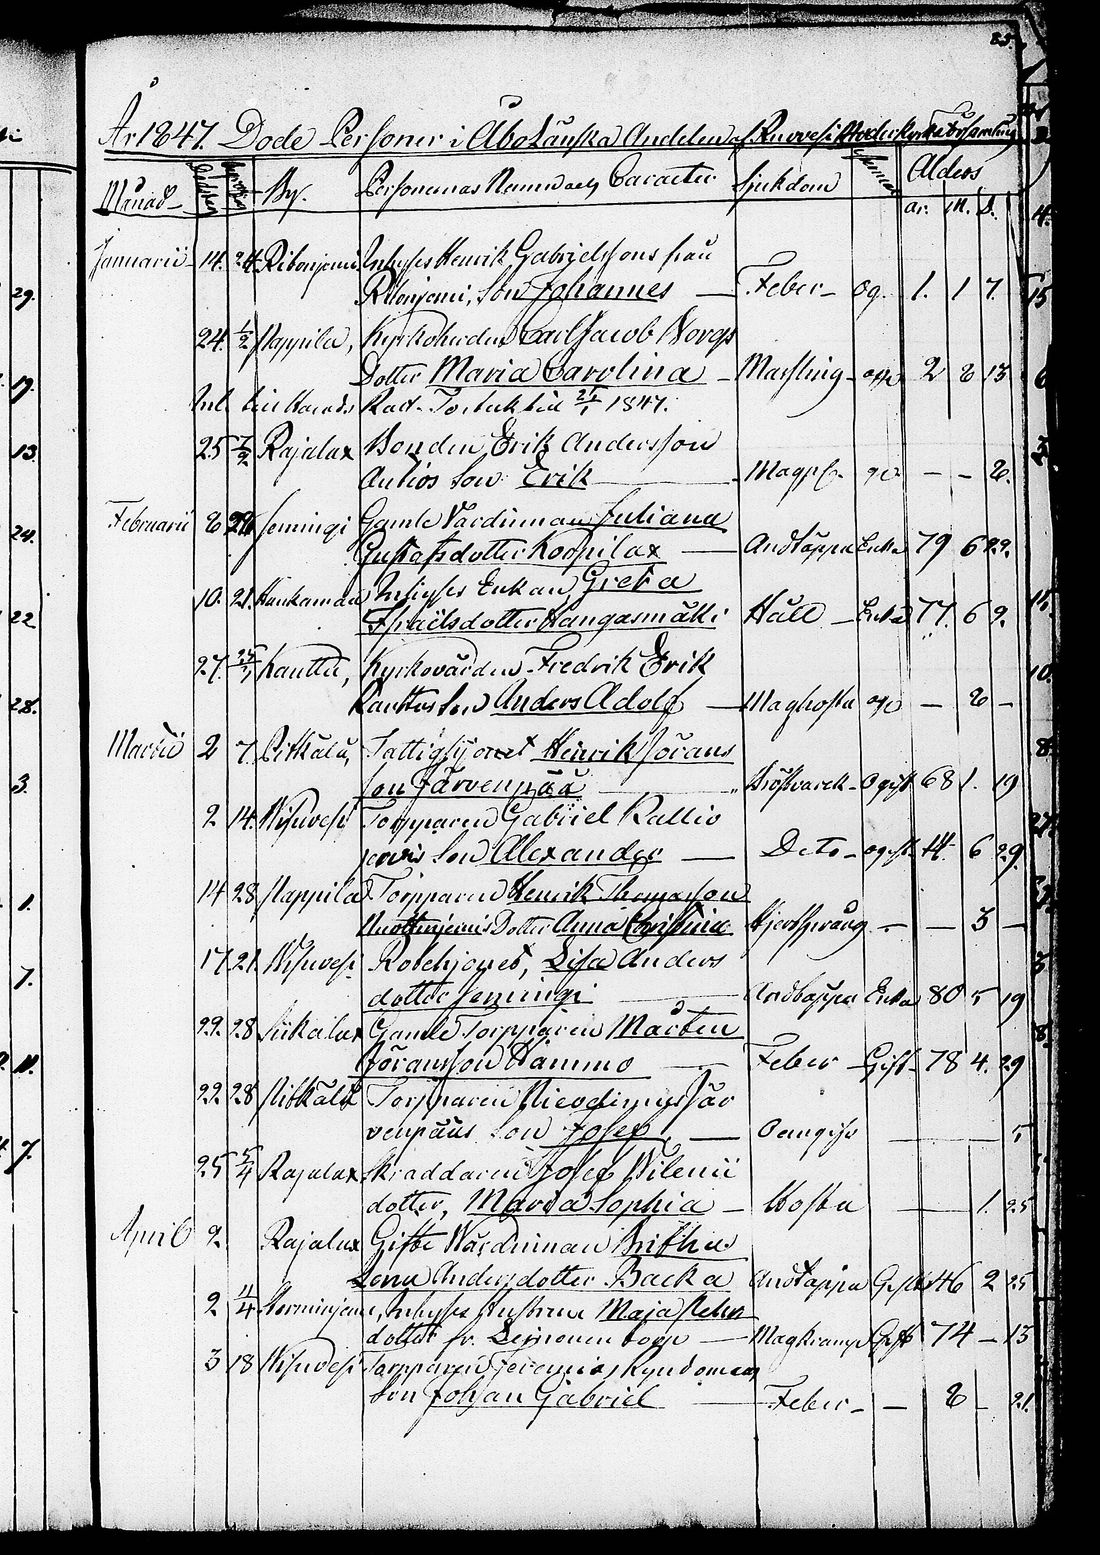 85.
År 1847. Döde Personer i Åbo Länska Andelen af Ruovesi Moderkyrko Församling
Månad By. Personernas Namn och Caracter Sjukdom Ålders
år. m. d.
Januarii 14. 24. Ribonjemi Inhyses Henrik Gabrielssons från
Ribonjemi, Son Johannes — Feber — og. 1. 1 7.
24. 1/2 Pappila, Kyrkoherden Carl Jacob Borgs
Dotter Maria Carolina — Massling — 2 8 13
1847.
25 7/2 Rajalax Bonden Erik Andersson
Autios Son Erik — — 8.
Februarii 8 Jemingi Gamle Värdinnan Juliana
Gustafsdotter Korpilax — Andtäppa Enka 79 6 29.
10. 21. Inhyses Enkan Greta
Israelsdotter Kangasmäki Håll — Enka 77. 6 9.
27. Kauttu, Kyrkovärden Fredrik Erik
Kauttus Son Anders Adolf — Maghosta — 8 —
Martii 2 7. Pitkälä, Fattighjonet Henrik Jörans
son Järvenpää Bröstvärck — Ogift 68 1. 19
2 14. Wisuvesi Torpparen Gabriel Kallio
jervis Son Alexander — Deto — ogift 14 6 29.
14 28 Pappila Torpparen Henrik Thomasson
Dotter Anna Christina — — 3 —
17. 21. Wisuvesi Rotehjonet, Lisa Anders
dotter Jemingi Andtäppa Enka 80 5 19
22. 28 Siikalax Gamle Torpparen Mårten
Jöransson Hammo — Feber — Gift — 78 4. 29
22. 28 Pitkälä Torpparen Nicodemus Jär
venpääs Son Josef, — Oangifv. 5
25 5/4 Rajalax Skräddaren Josef Wilenii
dotter, Maria Sophia — Hosta 1. 25
April 2. Rajalax Gifte Wärdinnan Britha
Lena Andersdotter Backa Andtäppa Gift 46 2 25
2 11/4 Inhyses Hustrun Maja Peters
dotter fr. — Magkramp Gift 74 — 13
3 18 Wisuvesi Torpparen Jeremias
Son Johan Gabriel Feber — — 8 — 21.